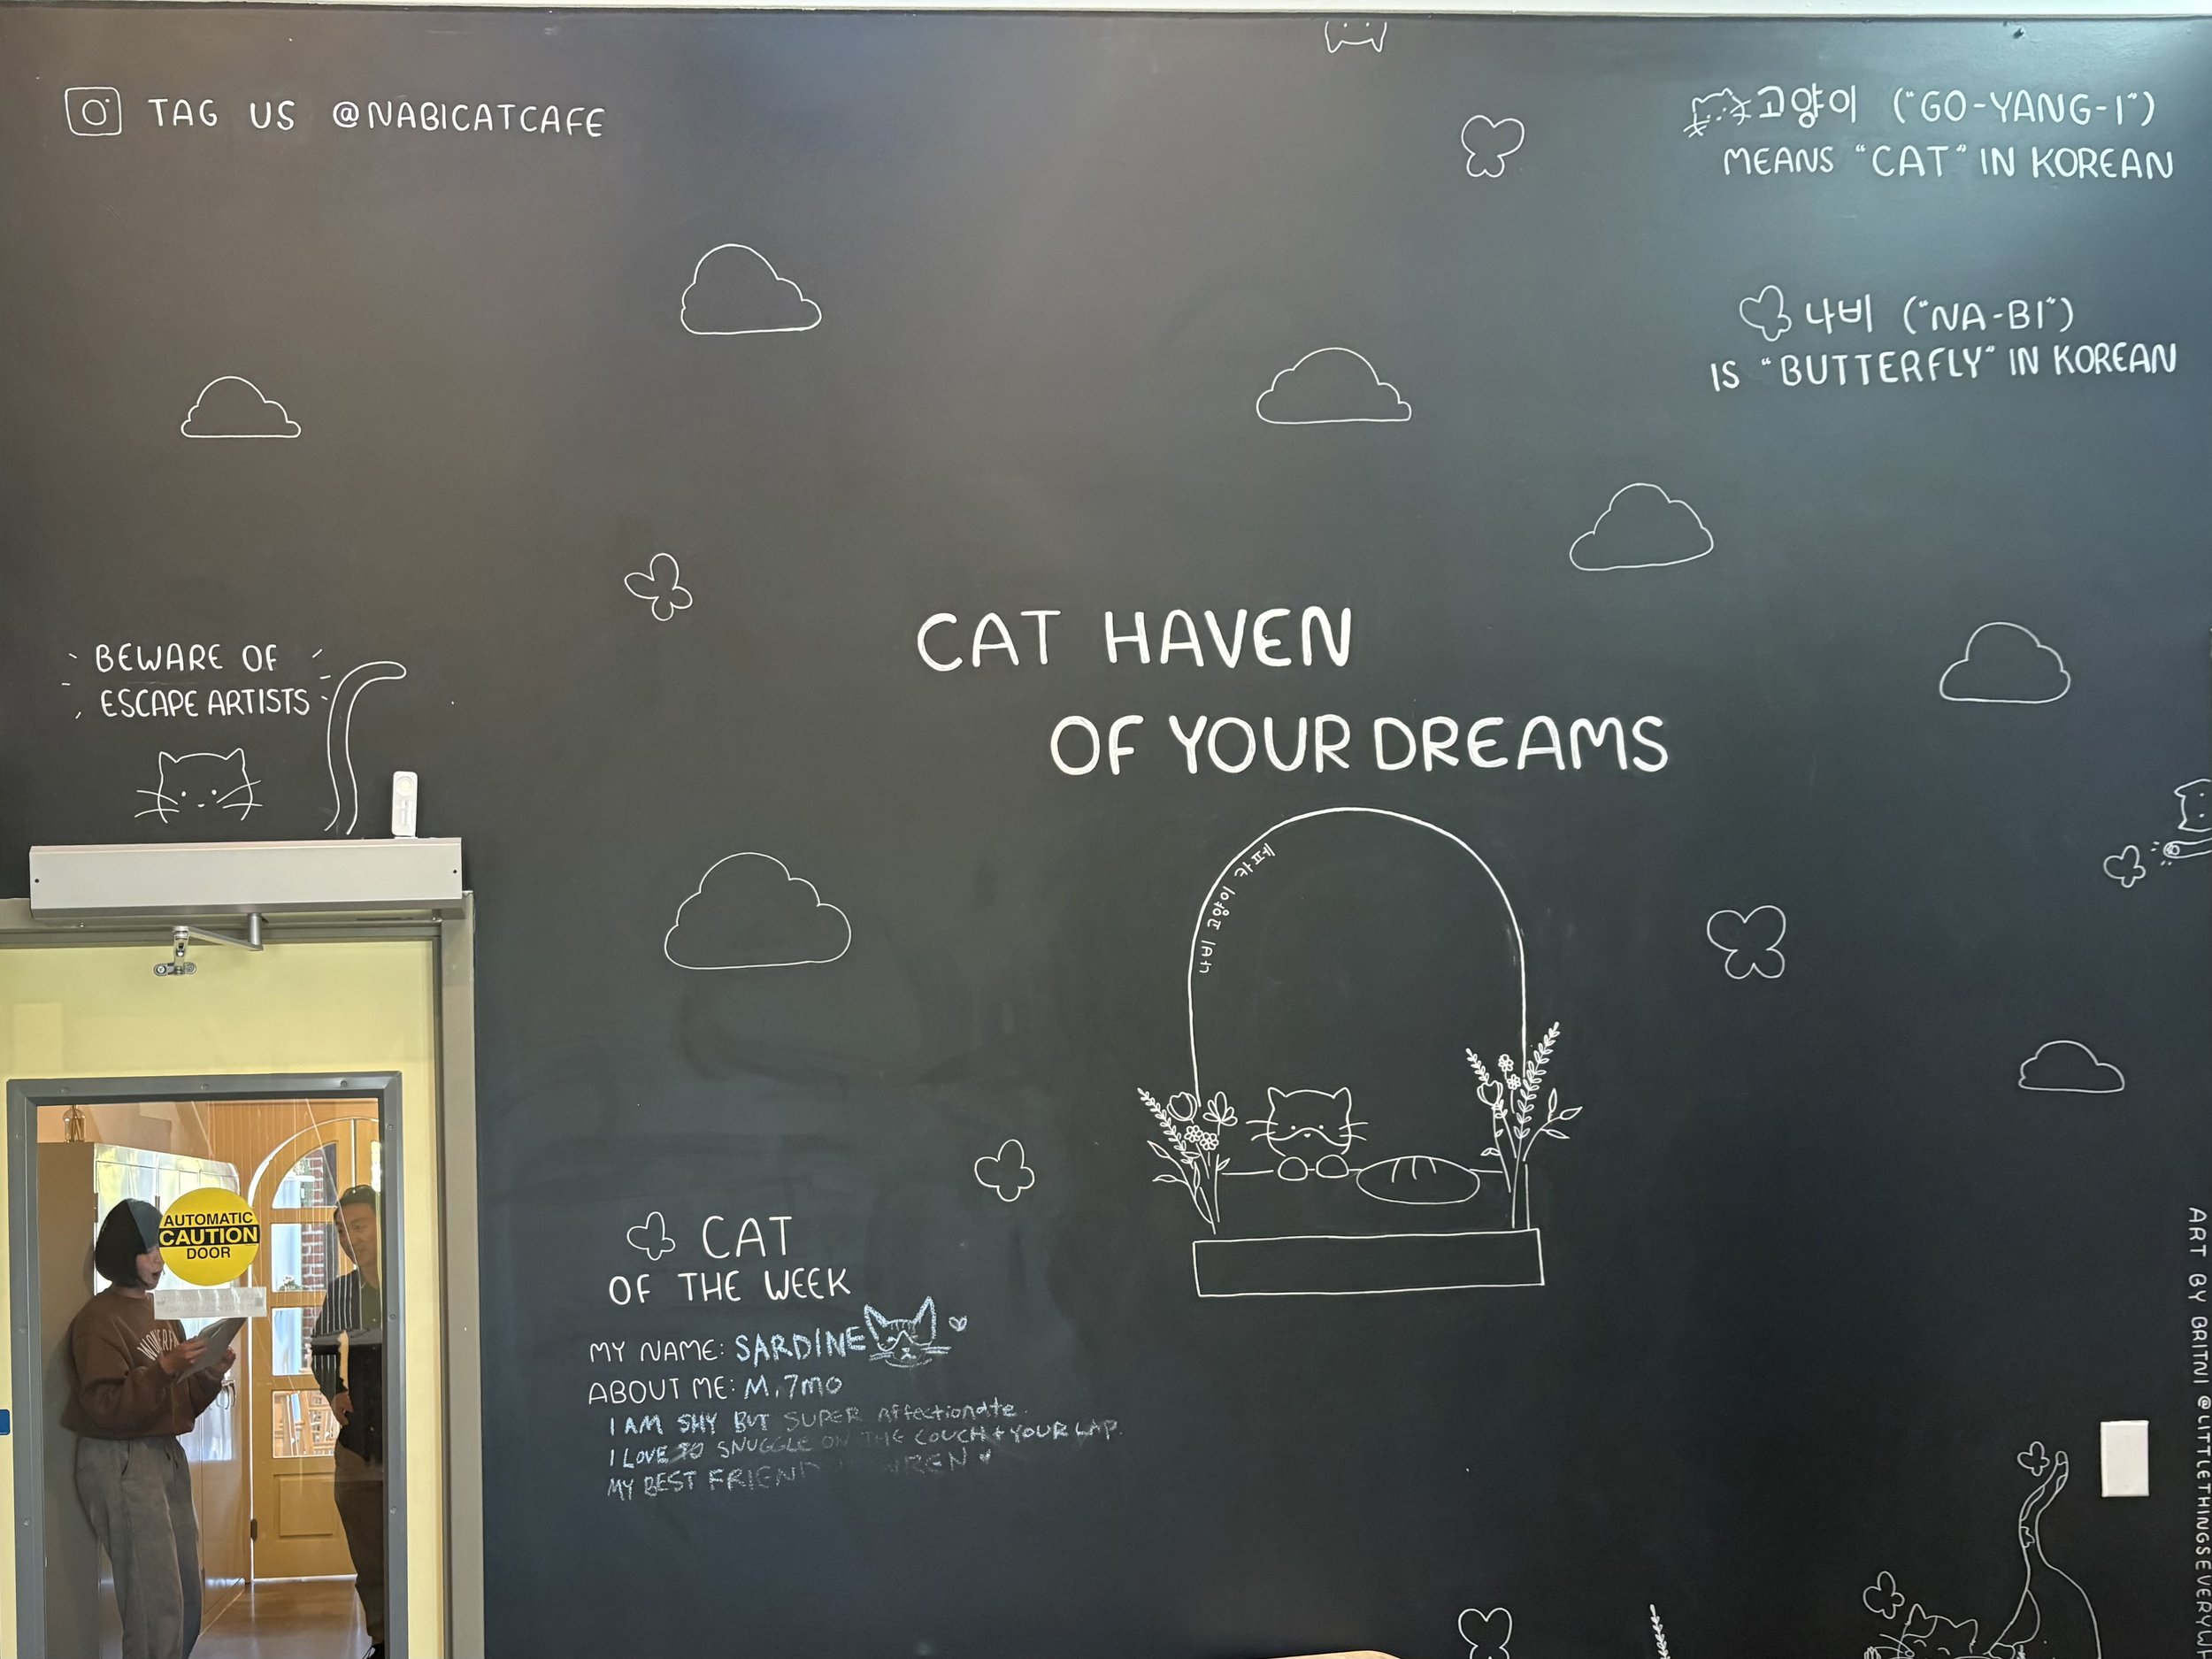 TAG US @NABICATCAFE
고양이 ("GO-YANG-I")
MEANS "CAT" IN KOREAN
나비 ("NA-BI")
IS "BUTTERFLY" IN KOREAN
BEWARE OF
ESCAPE ARTISTS
CAT HAVEN
OF YOUR DREAMS
나비 고양이 카페
AUTOMATIC
CAUTION
DOOR
CAT
OF THE WEEK
MY NAME: SARDINE
ABOUT ME: M, 7mo
I AM SHY BUT SUPER Affectionate.
I LOVE TO SNUGGLE ON THE COUCH + YOUR LAP.
MY BEST FRIEND WREN
ART BY BRITNI @LITTLETHINGSEVERYWH